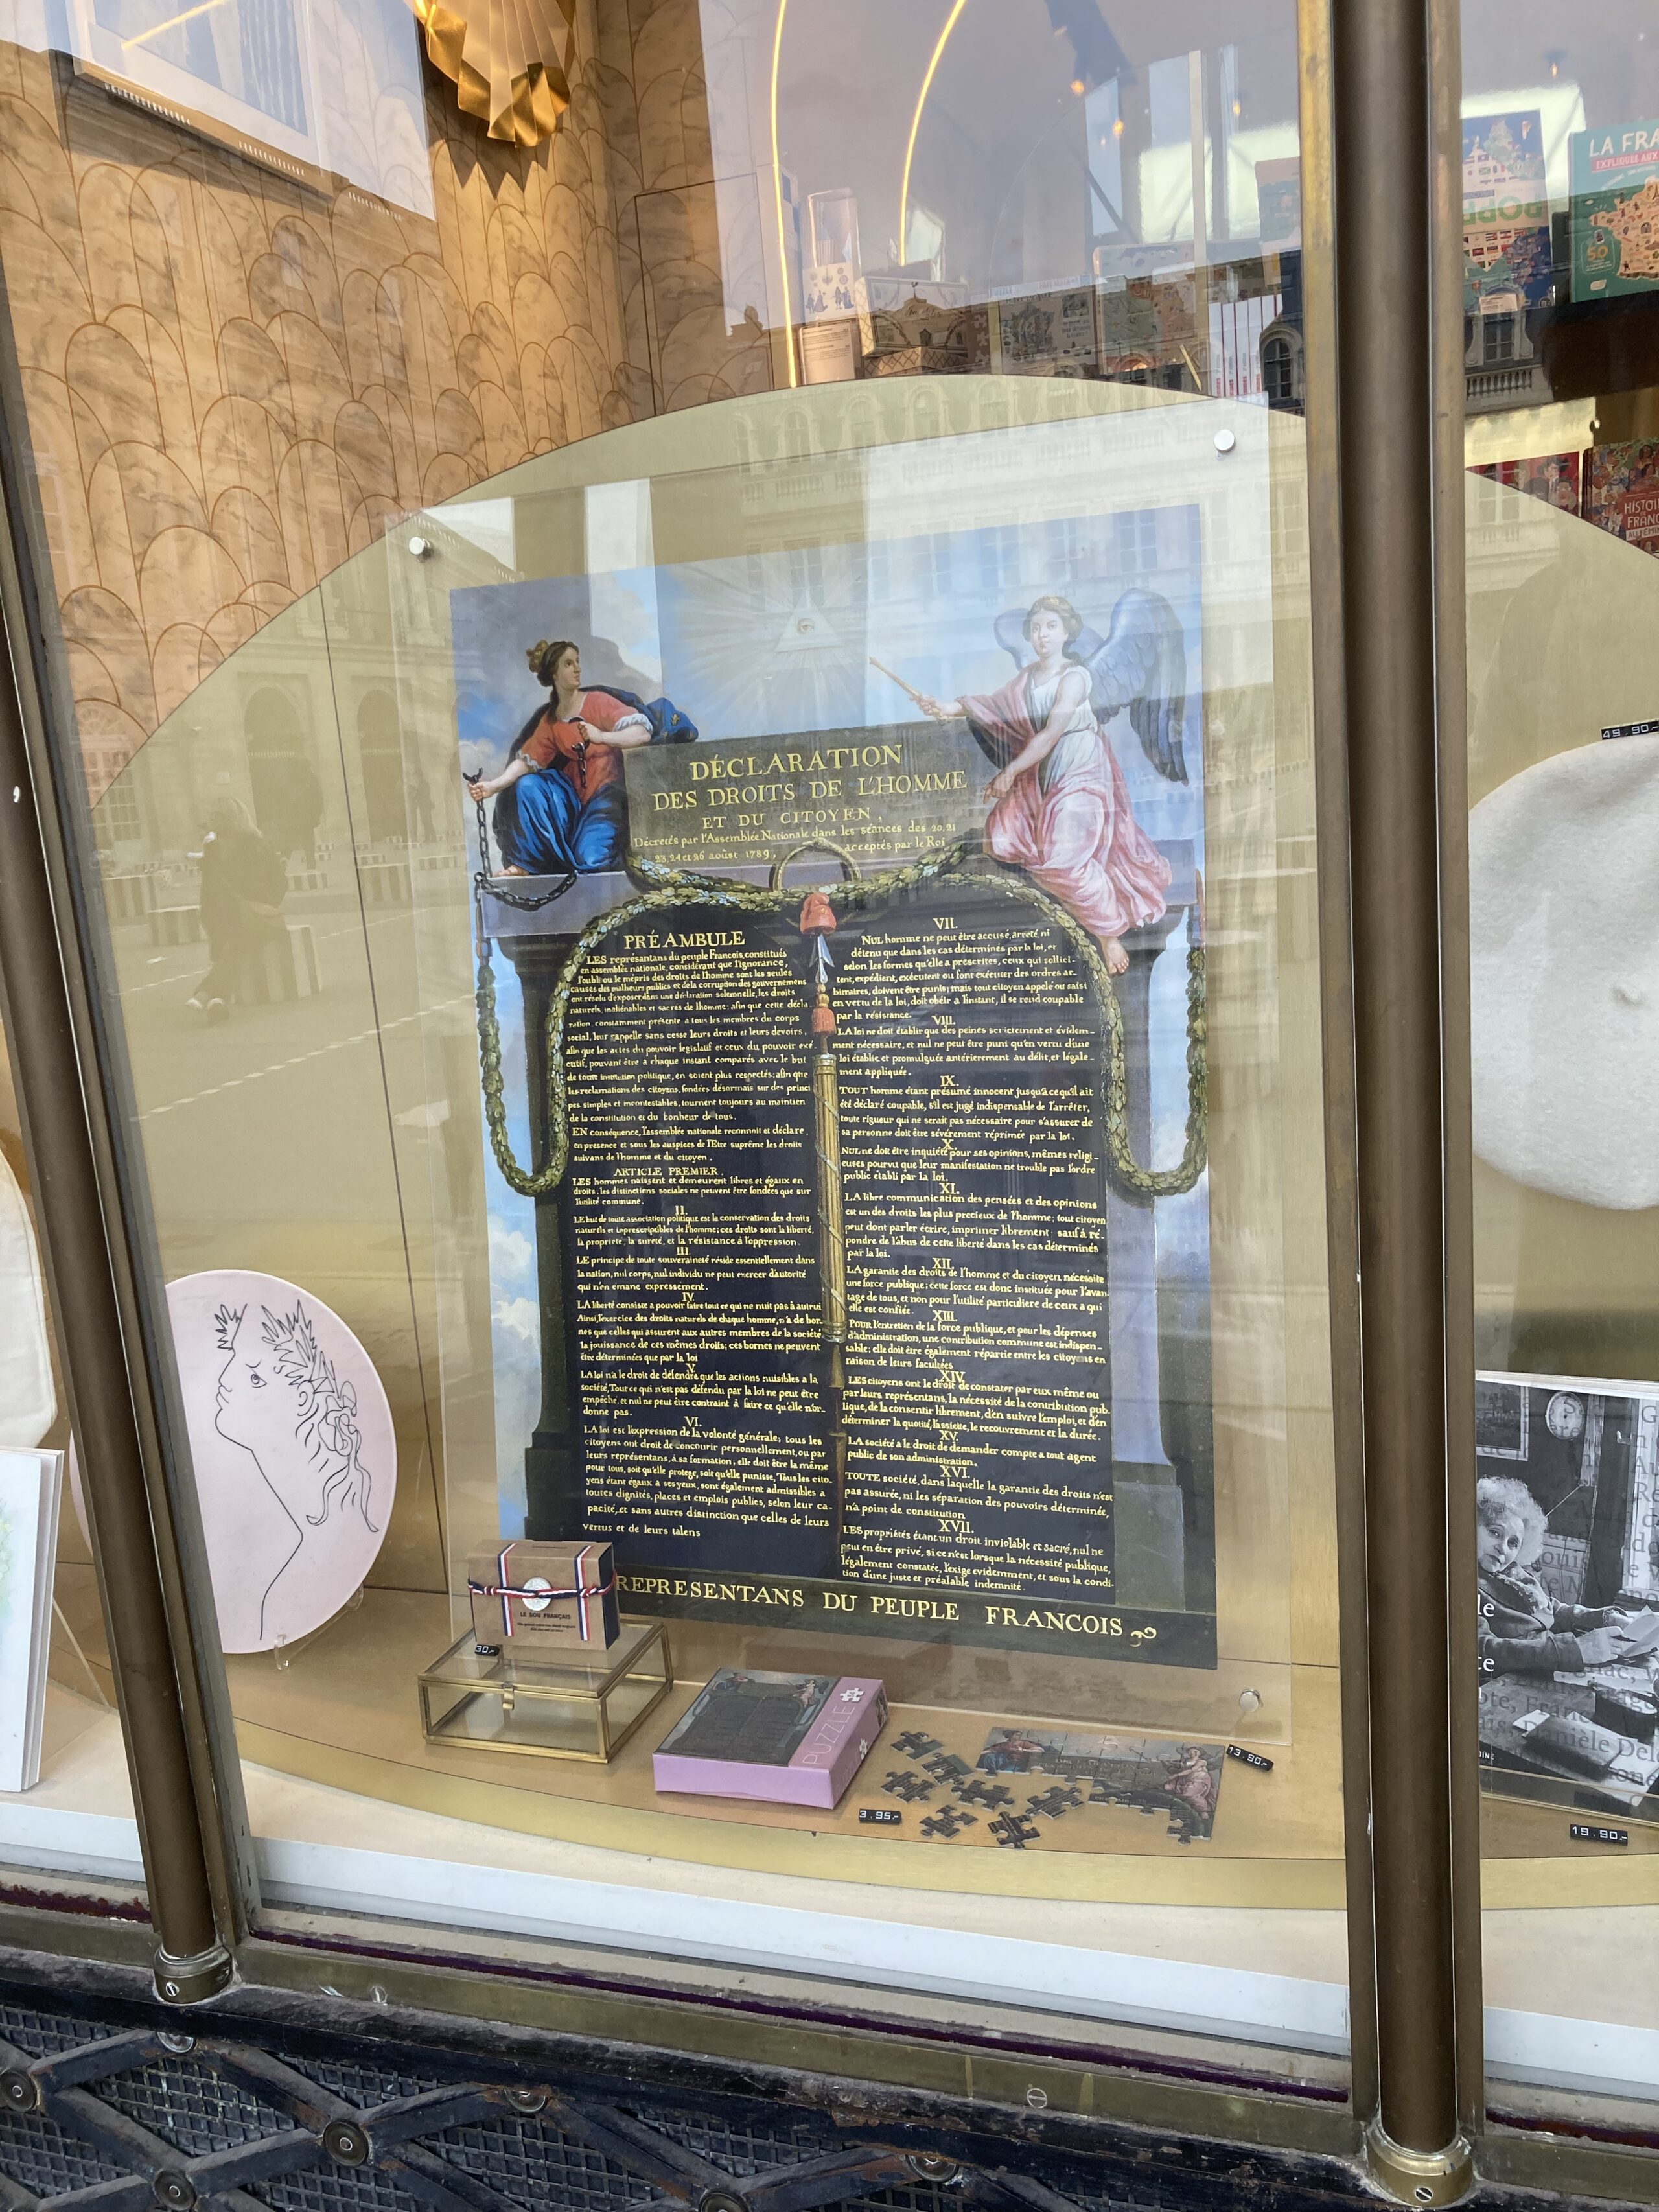 LA FRA
EXPLIQUÉE AUX
50
HISTOI
FRANÇ
49.90.-
DÉCLARATION
DES DROITS DE L'HOMME
ET DU CITOYEN,
Décretés par l'Assemblée Nationale dans les séances des 20, 21
23, 24 et 26 août 1789, acceptés par le Roi
PRÉAMBULE
LES représentans du peuple François, constitués
en assemblée nationale, considérant que l'ignorance,
l'oubli ou le mépris des droits de l'homme sont les seules
causes des malheurs publics et de la corruption des gouvernemens
ont résolu d'exposer dans une déclaration solemnelle, les droits
naturels, inaliénables et sacrés de l'homme; afin que cette décla
ration, constamment présente a tous les membres du corps
social, leur rappelle sans cesse leurs droits et leurs devoirs,
afin que les actes du pouvoir legislatif et ceux du pouvoir exé
cutif, pouvant être a chaque instant comparés avec le but
de toute institution politique, en soient plus respectés; afin que
les reclamations des citoyens, fondées désormais sur des princi
pes simples et incontestables, tournent toujours au maintien
de la constitution et du bonheur de tous.
EN conséquence, l'assemblée nationale reconnoit et déclare,
en presence et sous les auspices de l'Etre suprême les droits
suivans de l'homme et du citoyen.
ARTICLE PREMIER.
LES hommes naissent et demeurent libres et égaux en
droits; les distinctions sociales ne peuvent être fondées que sur
l'utilité commune.
II.
LE but de toute association politique est la conservation des droits
naturels et inprescriptibles de l'homme; ces droits sont la liberté,
la propriété, la sureté, et la résistance à l'oppression.
III.
LE principe de toute souveraineté réside essentiellement dans
la nation, nul corps, nul individu ne peut exercer d'autorité
qui n'en émane expressément.
IV.
LA liberté consiste a pouvoir faire tout ce qui ne nuit pas à autrui
Ainsi, l'exercice des droits naturels de chaque homme, n'a de bor-
nes que celles qui assurent aux autres membres de la société
la jouissance de ces mêmes droits; ces bornes ne peuvent
être déterminées que par la loi
V.
LA loi n'a le droit de défendre que les actions nuisibles a la
société. Tout ce qui n'est pas défendu par la loi ne peut être
empêché, et nul ne peut être contraint à faire ce qu'elle n'or-
donne pas.
VI.
LA loi est l'expression de la volonté générale; tous les
citoyens ont droit de concourir personnellement, ou par
leurs représentans, à sa formation; elle doit être la même
pour tous, soit qu'elle protege, soit qu'elle punisse. Tous les cito-
yens étant égaux a ses yeux, sont également admissibles a
toutes dignités, places et emplois publics, selon leur ca-
pacité, et sans autres distinction que celles de leurs
vertus et de leurs talens
VII.
NUL homme ne peut être accusé, arreté, ni
détenu que dans les cas déterminés par la loi, et
selon les formes qu'elle a prescrites, ceux qui sollici-
tent, expédient, exécutent ou font exécuter des ordres ar-
bitraires, doivent être punis; mais tout citoyen appelé ou saisi
en vertu de la loi, doit obéir a l'instant, il se rend coupable
par la résistance.
VIII.
LA loi ne doit établir que des peines strictement et évidem-
ment nécessaire, et nul ne peut être puni qu'en vertu d'une
loi établie et promulguée antérierement au délit, et légale-
ment appliquée.
IX.
TOUT homme étant présumé innocent jusqu'a ce qu'il ait
été déclaré coupable, s'il est jugé indispensable de l'arrêter,
toute rigueur qui ne serait pas nécessaire pour s'assurer de
sa personne doit être sévérement réprimée par la loi.
X.
NUL ne doit être inquiété pour ses opinions, mêmes religi-
euses pourvu que leur manifestation ne trouble pas l'ordre
public établi par la loi.
XI.
LA libre communication des pensées et des opinions
est un des droits les plus precieux de l'homme; tout citoyen
peut donc parler écrire, imprimer librement: sauf à ré-
pondre de l'abus de cette liberté dans les cas déterminés
par la loi.
XII.
LA garantie des droits de l'homme et du citoyen nécessite
une force publique; cette force est donc instituée pour l'avan-
tage de tous, et non pour l'utilité particuliere de ceux a qui
elle est confiée.
XIII.
POUR l'entretien de la force publique, et pour les dépenses
d'administration, une contribution commune est indispen-
sable; elle doit être également répartie entre les citoyens en
raison de leurs facultées
XIV.
LES citoyens ont le droit de constater par eux même ou
par leurs représentans, la nécessité de la contribution pub-
lique, de la consentir librement, d'en suivre l'emploi, et d'en
déterminer la quotité, l'assiette, le recouvrement et la durée.
XV.
LA société a le droit de demander compte a tout agent
public de son administration.
XVI.
TOUTE société, dans laquelle la garantie des droits n'est
pas assurée, ni les séparation des pouvoirs déterminée,
n'a point de constitution
XVII.
LES propriétés étant un droit inviolable et sacré, nul ne
peut en être privé, si ce n'est lorsque la nécessité publique,
légalement constatée, l'exige evidemment, et sous la condi-
tion d'une juste et préalable indemnité.
REPRESENTANS DU PEUPLE FRANCOIS
LE SOU FRANÇAIS
30.-
PUZZLE
3.95.-
13.90.-
19.90.-